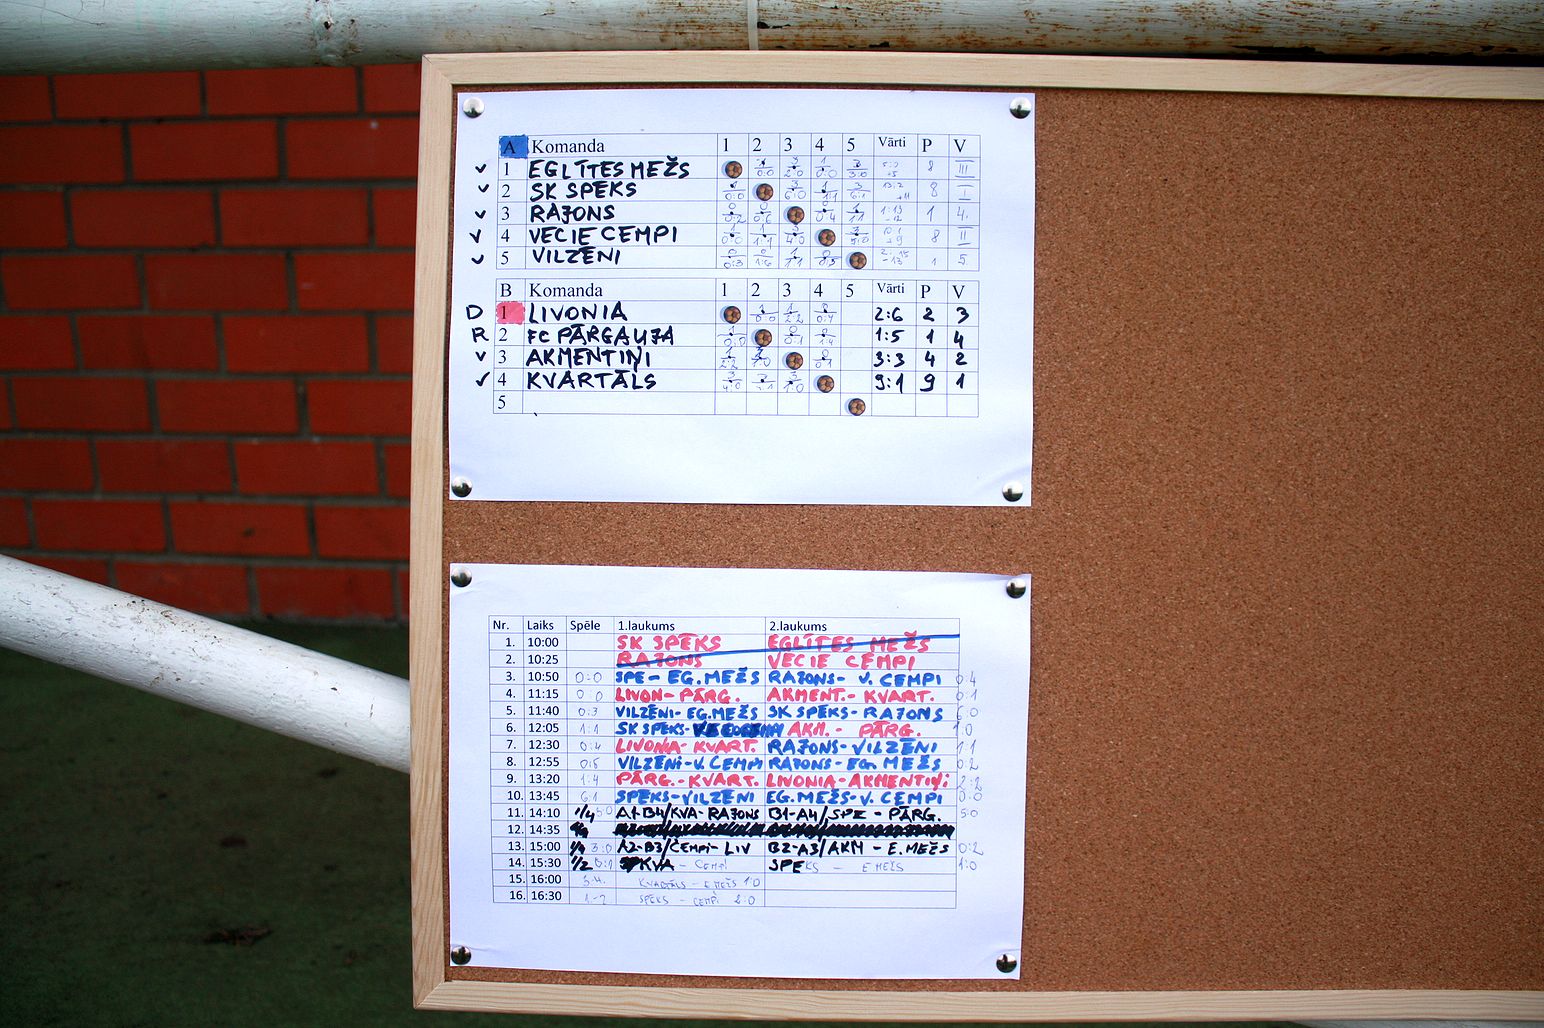 A Komanda 1 2 3 4 5 Vārti P V
1 EGLĪTES MEŽS 1 0:0 3 2:0 1 0:0 3 3:0 5:0 +5 8 III
2 SK SPĒKS 1 0:0 3 6:0 1 1:1 3 6:1 13:2 +11 8 I
3 RAJONS 0 0:2 0 0:6 0 0:4 1 1:1 1:13 -12 1 4.
4 VECIE CEMPI 1 0:0 1 1:1 3 4:0 3 5:0 10:1 +9 8 II
5 VILZĒNI 0 0:3 0 1:6 1 1:1 0 0:5 2:15 -13 1 5
B Komanda 1 2 3 4 5 Vārti P V
D 1 LIVONIA 1 0:0 1 2:2 0 0:4 2:6 2 3
R 2 FC PĀRGAUJA 1 0:0 0 0:1 0 1:4 1:5 1 4
3 AKMENTIŅI 1 2:2 3 1:0 0 0:1 3:3 4 2
4 KVARTĀLS 3 4:0 3 4:1 3 1:0 9:1 9 1
5
Nr. Laiks Spēle 1.laukums 2.laukums
1. 10:00 SK SPĒKS EGLĪTES MEŽS
2. 10:25 RAJONS VECIE CEMPI
3. 10:50 0:0 SPE - EG.MEŽS RAJONS - V. CEMPI 0:4
4. 11:15 0:0 LIVON - PĀRG. AKMENT. - KVART. 0:1
5. 11:40 0:3 VILZĒNI - EG.MEŽS SK SPĒKS - RAJONS 6:0
6. 12:05 1:1 SK SPĒKS - AKM. - PĀRG. 1:0
7. 12:30 0:4 LIVONIA - KVART. RAJONS - VILZĒNI 1:1
8. 12:55 0:5 VILZĒNI - V. CEMPI RAJONS - EG. MEŽS 0:2
9. 13:20 1:4 PĀRG. - KVART. LIVONIA - AKMENTIŅI 2:2
10. 13:45 6:1 SPĒKS - VILZĒNI EG.MEŽS - V. CEMPI 0:0
11. 14:10 1/4 5:0 A1-B4/KVA - RAJONS B1-A4/SPE - PĀRG. 5:0
12. 14:35
13. 15:00 1/4 3:0 A2-B3/CEMPI - LIV B2-A3/AKM - E.MEŽS 0:2
14. 15:30 1/2 0:1 KVA - CEMPI SPEKS - E MEŽS 1:0
15. 16:00 3-4. KVARTĀLS - E MEŽS 1:0
16. 16:30 1-2 SPĒKS - CEMPI 2:0